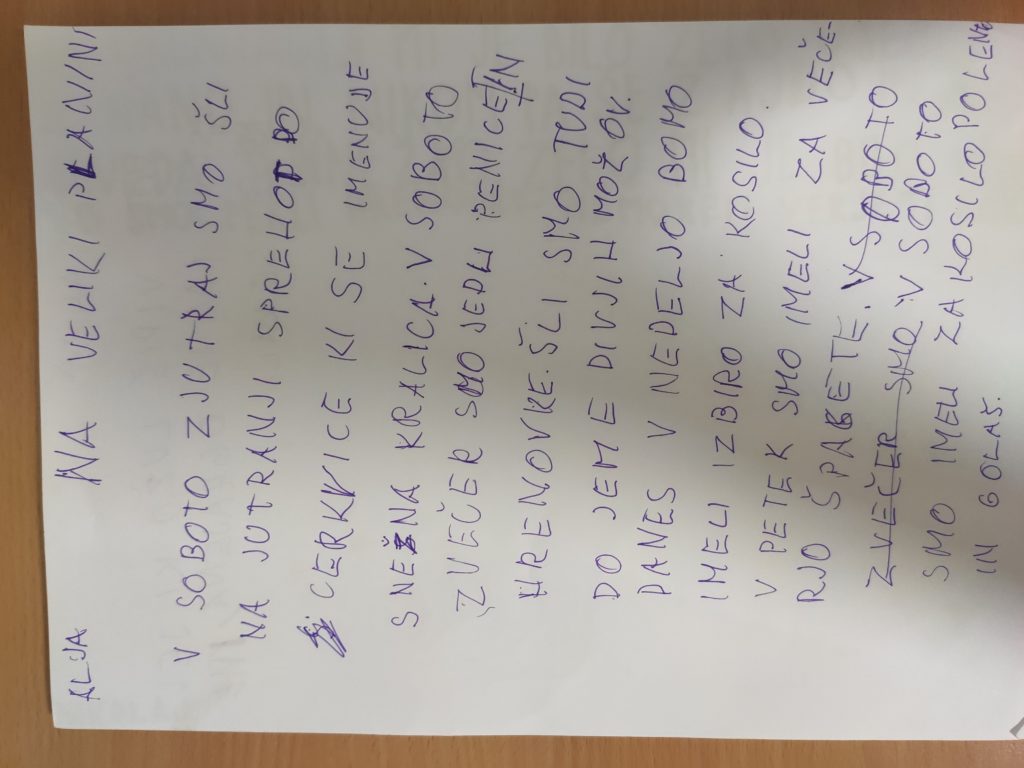 ALJA NA VELIKI PLANINI
V SOBOTO ZJUTRAJ SMO ŠLI
NA JUTRANJI SPREHOD DO
CERKVICE KI SE IMENUJE
SNEŽNA KRALICA. V SOBOTO
ZVEČER SMO JEDLI PENICE IN
HRENOVKE. ŠLI SMO TUDI
DO JEME DIVJIH MOŽ OV.
DANES V NEDELJO BOMO
IMELI IZBIRO ZA KOSILO.
V PETEK SMO IMELI ZA VEČE-
RJO ŠPAGETE. V SOBOTO
ZVEČER SMO V SOBOTO
SMO IMELI ZA KOSILO POLENE
IN GOLAŠ.